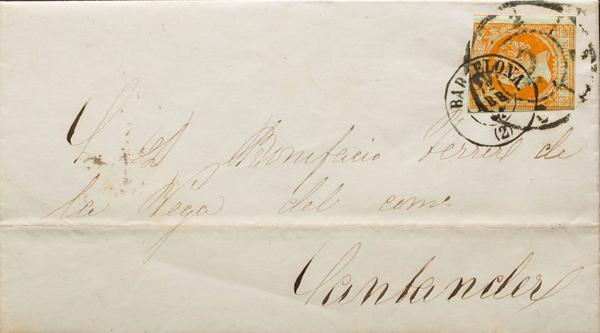 BARCELONA
ABR
(2)
Bonifacio Ferrer de
la Vega del comº
Santander